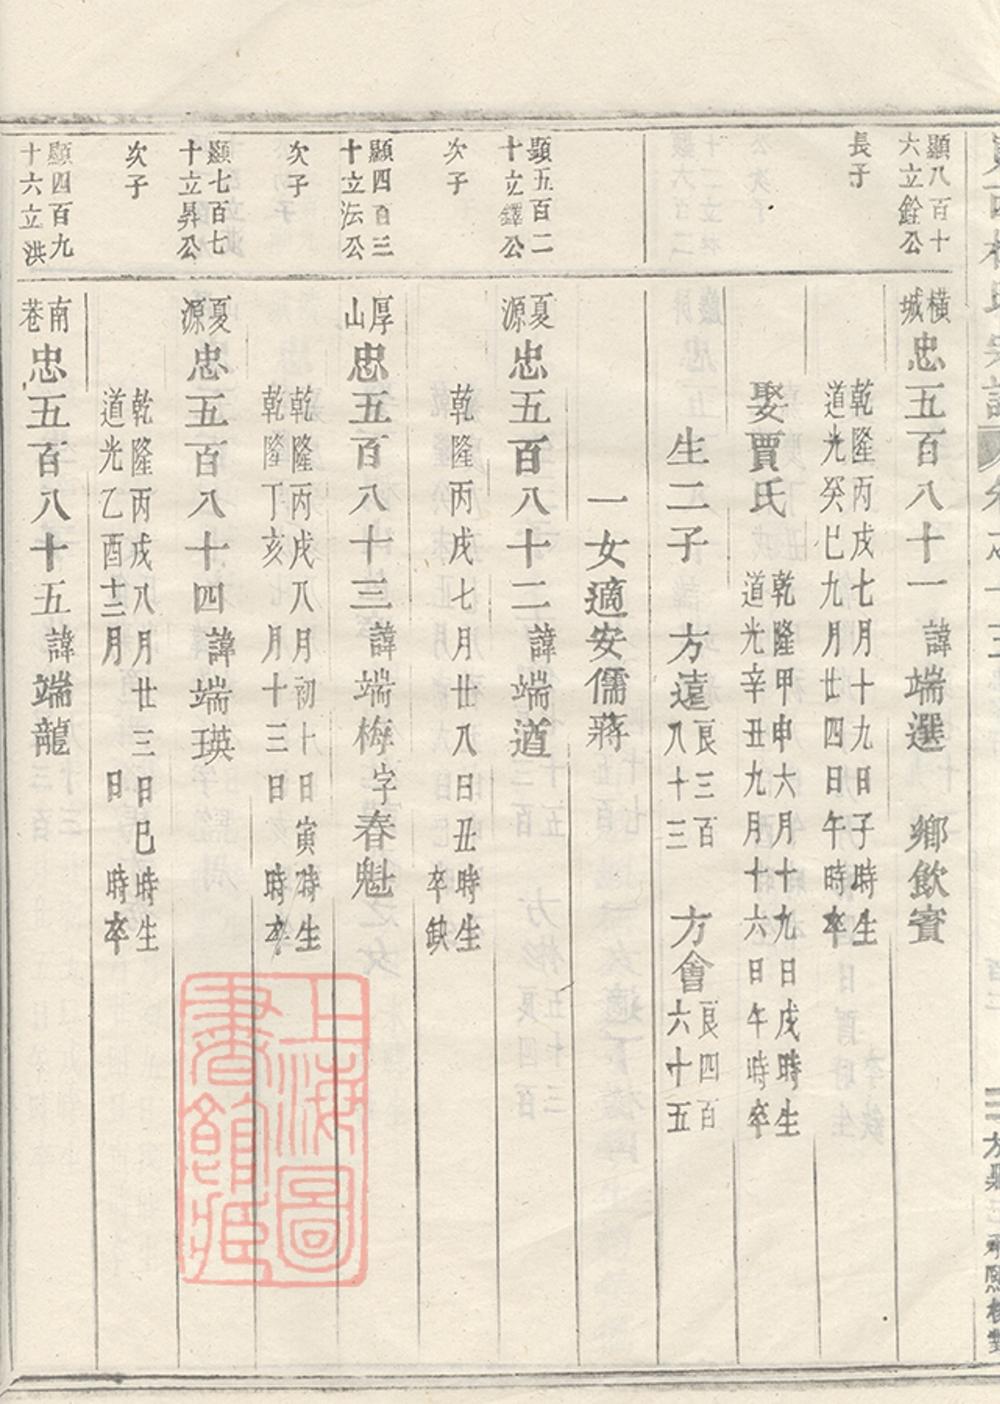 顯八百十六立銓公
長子
橫城 忠五百八十一 諱端選 鄉飲賓
乾隆丙戌七月十九日子時生
道光癸巳九月廿四日午時卒
娶賈氏
乾隆甲申六月十九日戌時生
道光辛丑九月十六日午時卒
生二子 方遠 良三百八十三 方會 良四百六十五
一女適安儒蔣
顯五百二十立鐸公
次子
夏源 忠五百八十二 諱端道
乾隆丙戌七月廿八日丑時生
卒缺
顯四百三十立法公
次子
厚山 忠五百八十三 諱端梅 字春魁
乾隆丙戌八月初十日寅時生
乾隆丁亥月十三日時卒
顯七百七十立昇公
次子
夏源 忠五百八十四 諱端瑛
乾隆丙戌八月廿三日巳時生
道光乙酉十二月日時卒
顯四百九十六立洪
南巷 忠五百八十五 諱端龍
上海圖書館藏